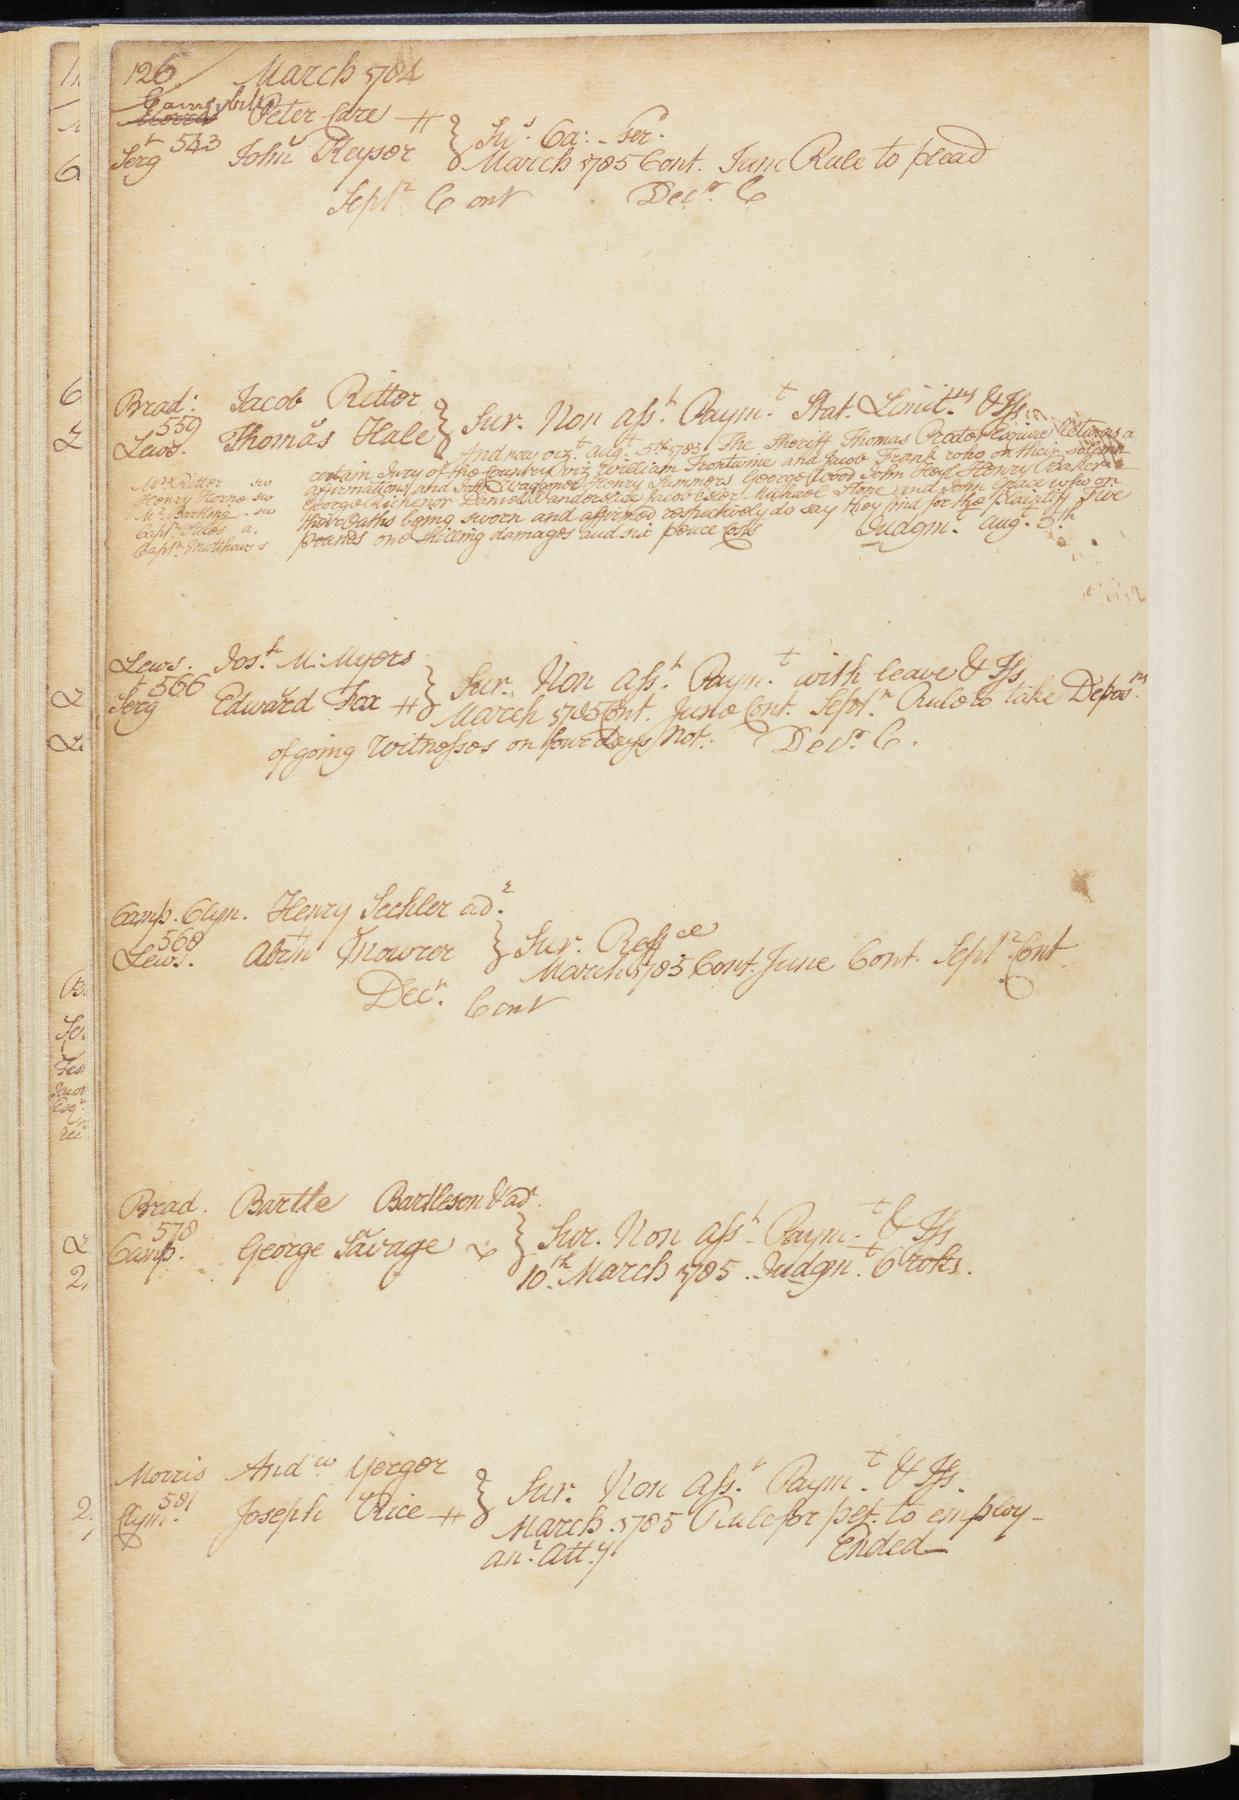 126 March 1784
Campbell
Morris Peter Care
Serg^t 543 John Keyser } Sur. Ca: Ser.
March 1785 Cont. June Rule to plead
Sept^r Cont Dec^r C
Brad: Jacob Ritter
559
Lews. Thomas Hale } Sur. Non ass^t Paym^t Stat. Limit^ns & Iss
And now viz^t Aug^t 5th 1785 The Sheriff Thomas Proctor Esquire Returns a
certain Jury of the Country viz William Trontwine and Jacob Frank who on their solemn
affirmations and John Waggoner Henry Summers George Wood John Hoy Henry Parker
George Richenor Daniel Vanderslise Jacob Esler Michael Hope and John Grace who on
their oaths being sworn and affirmed respectively do say they find for the plaintiff Five
pounds one shilling damages and six pence Costs Judgm^t Aug^t 5th
Mrs Ritter sw
Henry Horne sw
Mr. Barling sw
Capt Stiles a.
Capt. s
Lews. Jos^h M. Myers
566
Serg^t Edward Fox } Sur. Non ass^t Paym^t with leave & Iss
March 1785 Cont. June Cont. Sept^r Rule to take Depos^ns
of going Witnesses on four days Not: Dec^r C.
Camp. Clym. Henry Sechler ad^r
568
Lews. Abrm Mowrer } Sur. Reff^ce
March 1785 Cont. June Cont. Sept^r Cont
Dec^r. Cont
Brad. Bartle Bartleson & ad^r
578
Camp. George Savage } Sur. Non ass^t Paym^t & Iss
10th March 1785. Judgm^t C
Morris And^w Yerger
581
Clym. Joseph Rice } Sur. Non ass^t Paym^t & Iss.
March 1785 Rule for pet. to employ
an^r Att^y Ended